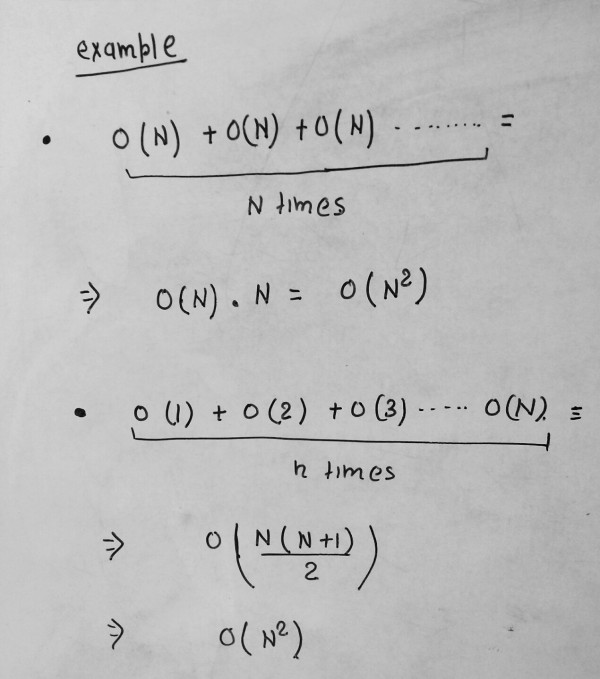 example
• O(N) + O(N) + O(N) --------- =
N times
⇒ O(N) . N = O(N²)
• O(1) + O(2) + O(3) ----- O(N) =
n times
⇒ O(N(N+1)/2)
⇒ O(N²)